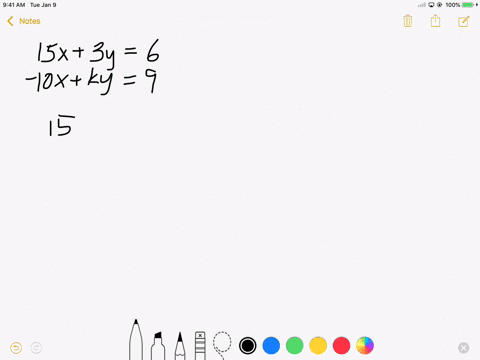 9:41 AM Tue Jan 9
100%
Notes
15x + 3y = 6
-10x + ky = 9
15